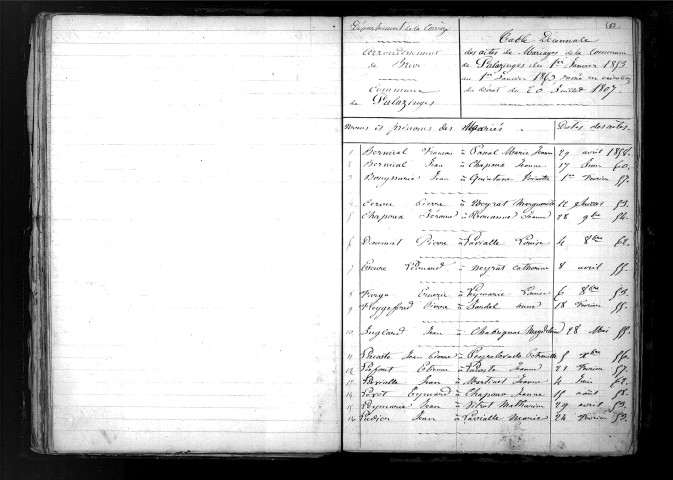 Département de la Corrèze
arrondissement
de Brive
Commune
de Palazinges
Table Décennale
des actes de Mariages de la Commune
de Palazinges du 1er Janvier 1853
au 1er Janvier 1863 en exécution
du décret du 20 Juillet 1807.
Noms et prénoms des Mariés
Dates des actes.
1 Bernical François à Canal Marie Jeanne 29 avril 1856
2 Bernical Jean à Chapoux Jeanne 17 Juin 60.
3 Jean à Quintane 1er Février 57.
4 Pierre à Neyrat Marguerite 11 Juillet 53.
5 Chapoux Jérome à Jeanne 28 9bre 54.
6 Pierre à Lavialle Louise 4 8bre 62.
7 Léonard à Neyrat Catherine 8 avril 55.
8 Farge à Leymarie Louise 6 8bre 53.
9 Pierre à Sandel anne 18 Février 55.
10 Jean à Chatrignac Magdeleine 28 Mai 55.
11 Jean Pierre à 5 Xbre 56.
12 Lafont Etienne à Jeanne 21 Février 57.
13 Lavialle Jean à Martinet Jeanne 4 Juin 62.
14 Eymard à Chapoux Jeanne 15 août 58.
15 Leymarie Jean à Vitrat Mathurine 29 avril 53.
16 Jean à Lavialle Marie 24 Février 53.